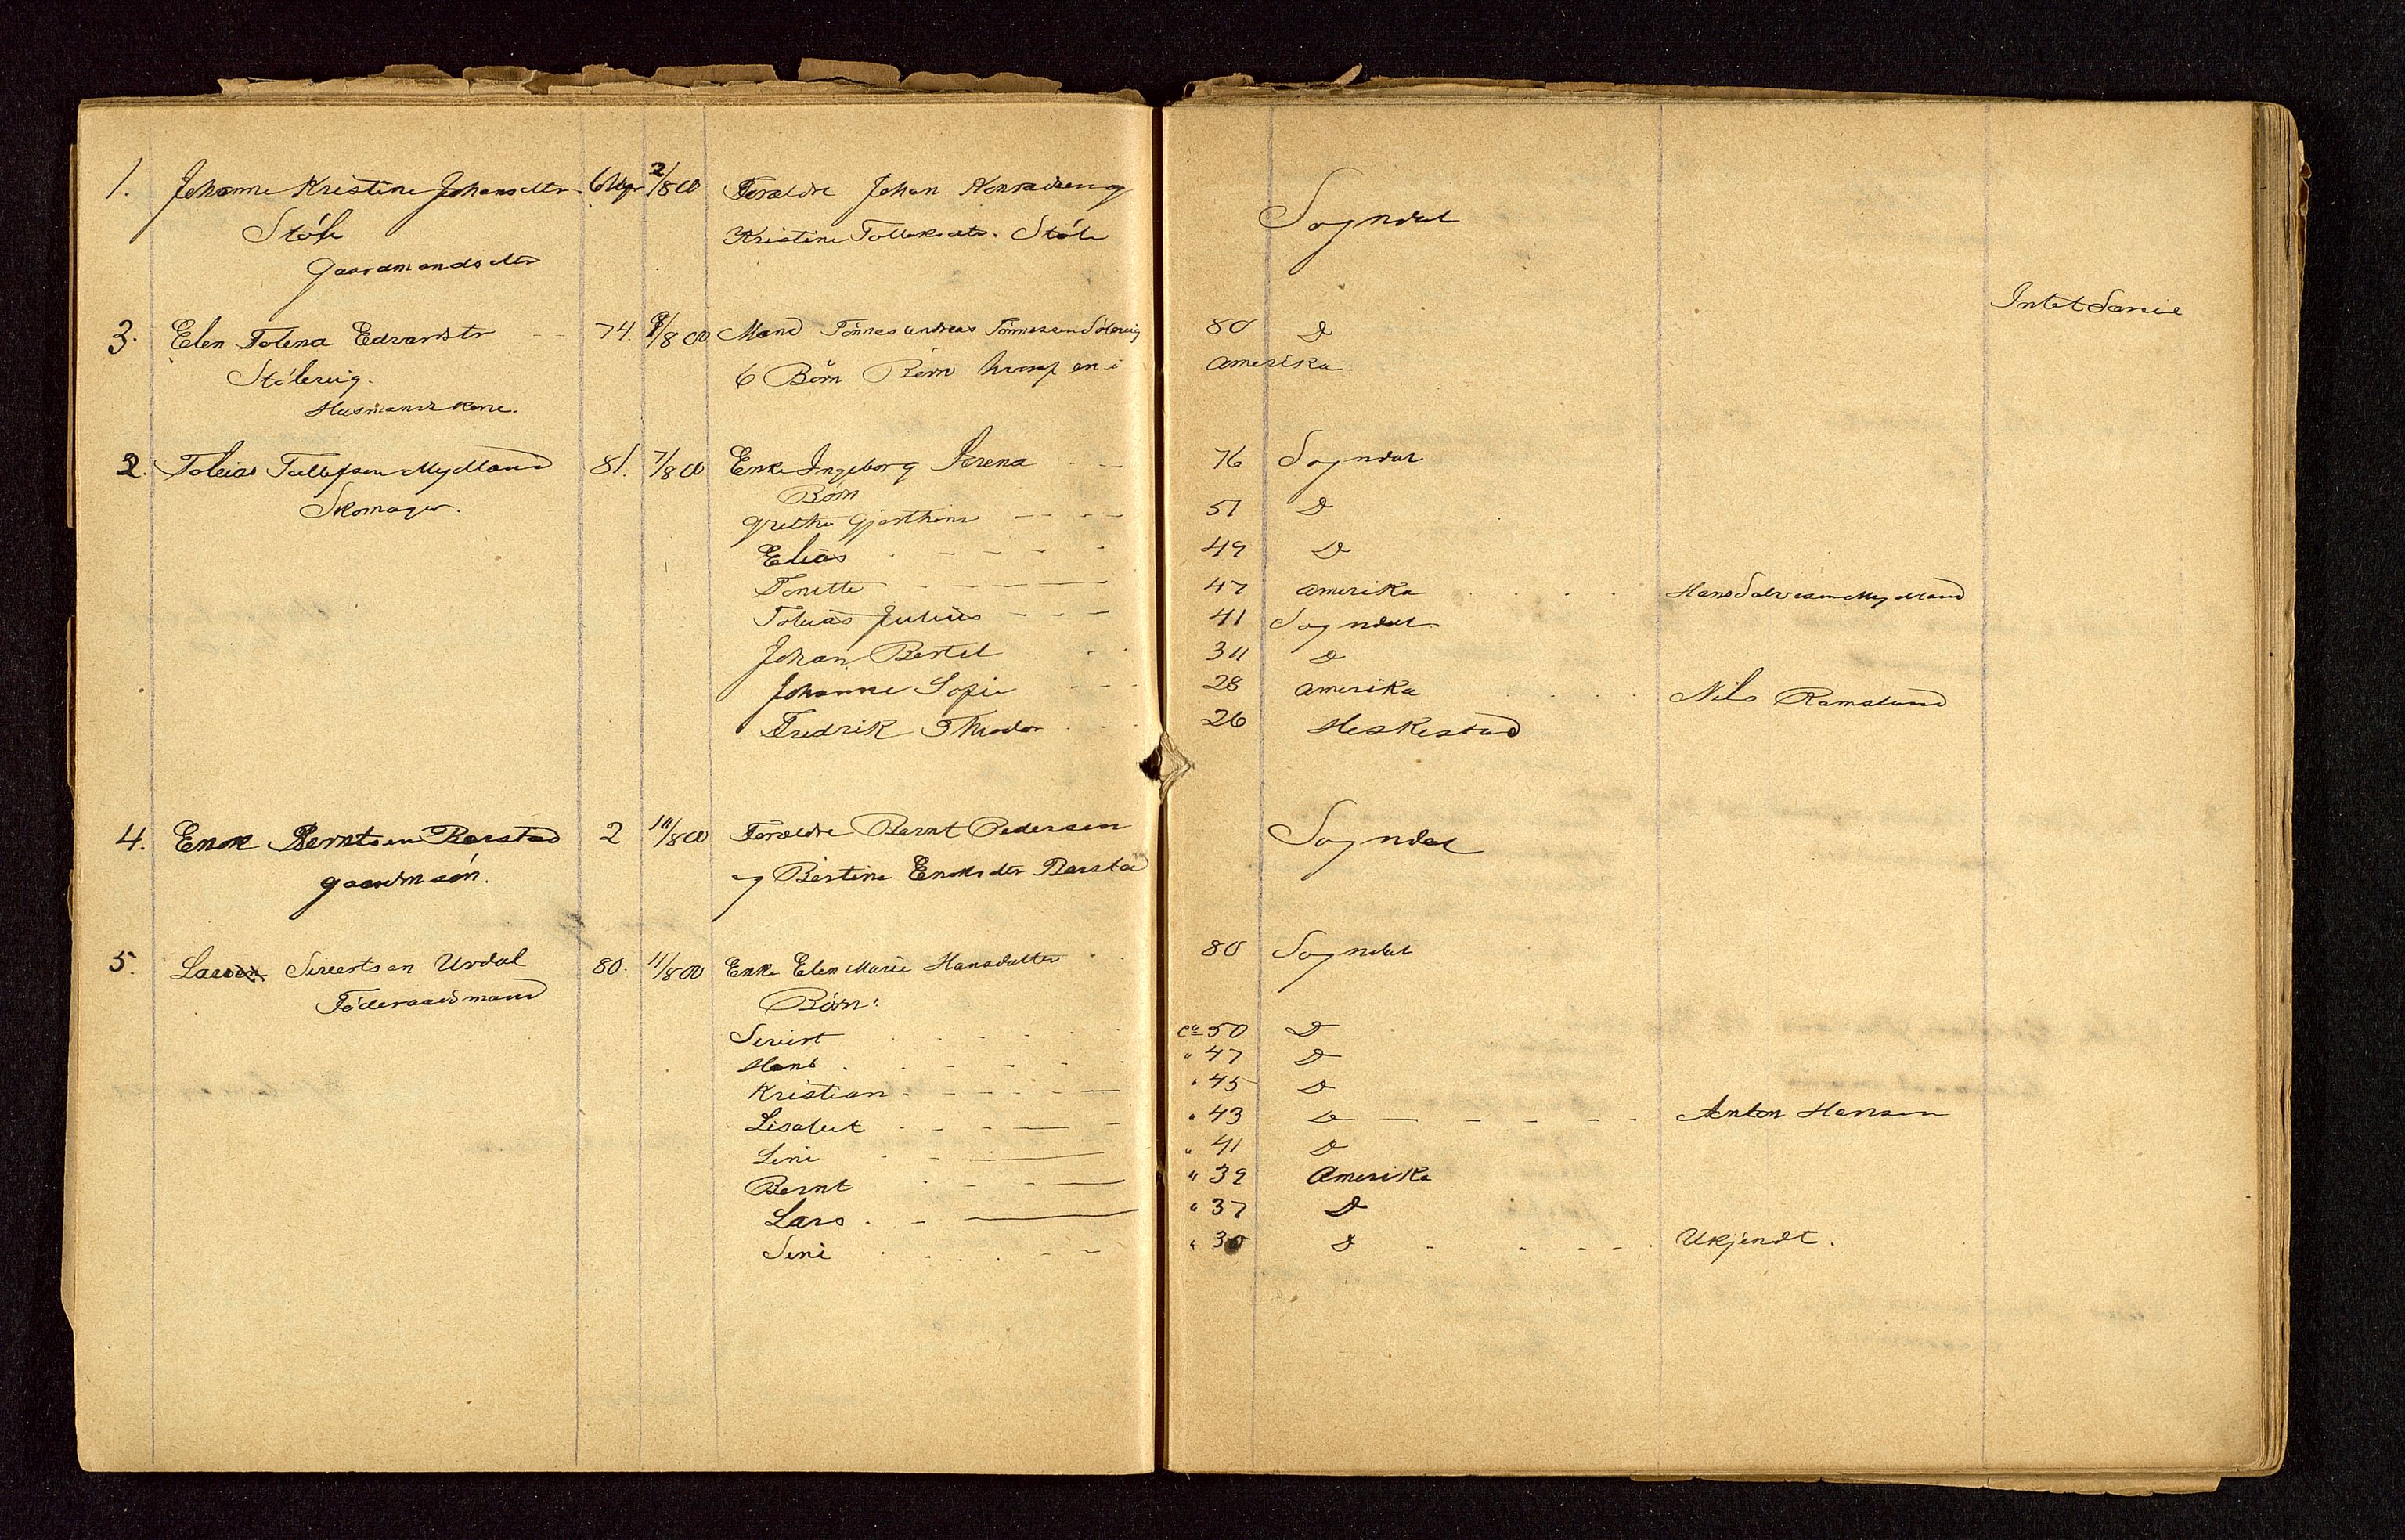 1. Johanne Kristine Johansdtr. 6 Ugr 2/8 00 Foreldre Johan Konradsen og Sogndal
Støle Kristine Tolleksdtr. Støle
Gaardmandsdtr
Intet Samie
3. Elen Tolena Edvardsdtr 74. 8/8 00 Mand Tønnes Andreas Tønnessen Stølereig 80 D
Stølereig. 6 Børn Børn hvoraf en i Amerika.
Husmandskone.
2. Tobias Tollefsen Mydland 81. 7/8 00 Enke Ingeborg Serena 76 Sogndal
Skomager. Børn
Grethe Gjørthine 51 D
Elias 49 D
Tonette 47 Amerika Hans Salvesen Mydland
Tobias Julius 41 Sogndal
Johan Bertel 34 D
Johanne Sofie 28 Amerika Nils Ramsland
Fredrik Theodor 26 Heskestad
4. Enok Berntsen Barstad 2 10/8 00 Foreldre Bernt Pedersen Sogndal
Gaardm søn. og Bertine Enoksdtr Barstad
5. Lauen Sivertsen Urdal 80. 11/8 00 Enke Elen Marie Hansdatter 80 Sogndal
Føderaadsmand Børn:
Sivert ca 50 D
Hans " 47 D
Kristian " 45 D
Lisabet " 43 D Anton Hansen
Line " 41 D
Bernt " 39 Amerika
Lars " 37 D
Sine " 30 D Ukjendt.